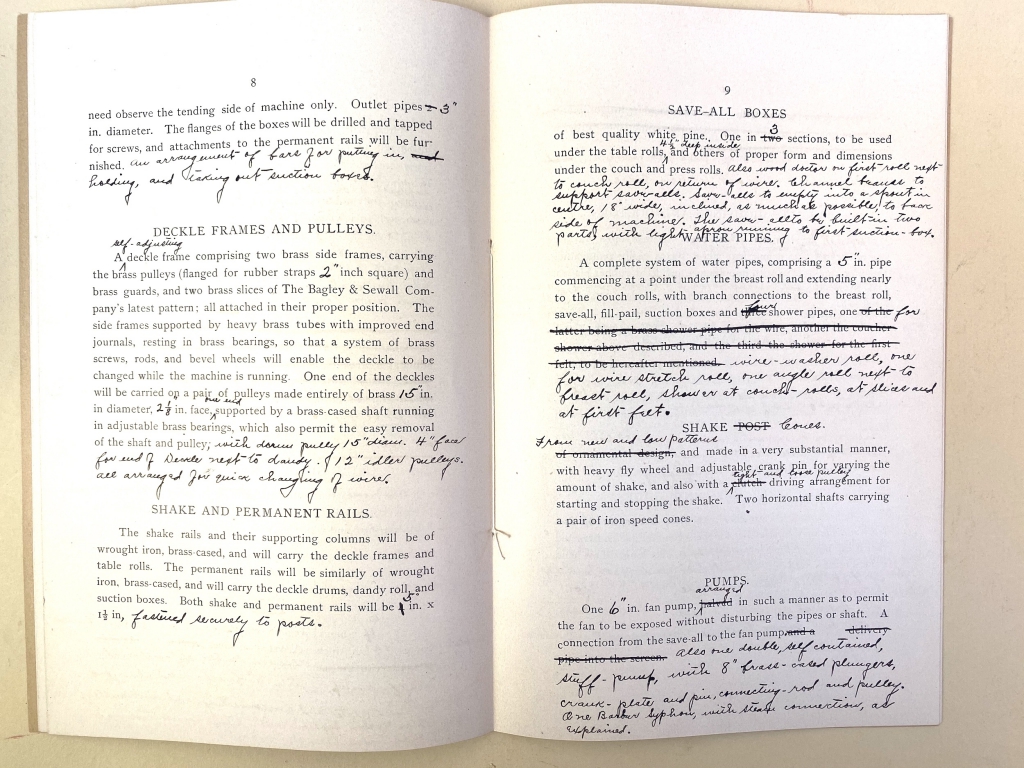 8
need observe the tending side of machine only. Outlet pipes 3"
in. diameter. The flanges of the boxes will be drilled and tapped
for screws, and attachments to the permanent rails will be fur-
nished. An arrangement of bars for putting in, and
holding, and taking out suction boxes.
DECKLE FRAMES AND PULLEYS.
self-adjusting
A deckle frame comprising two brass side frames, carrying
the brass pulleys (flanged for rubber straps 2" inch square) and
brass guards, and two brass slices of The Bagley & Sewall Com-
pany's latest pattern; all attached in their proper position. The
side frames supported by heavy brass tubes with improved end
journals, resting in brass bearings, so that a system of brass
screws, rods, and bevel wheels will enable the deckle to be
changed while the machine is running. One end of the deckles
will be carried on a pair of pulleys made entirely of brass 15" in.
one end
in diameter, 2½ in. face, supported by a brass-cased shaft running
in adjustable brass bearings, which also permit the easy removal
of the shaft and pulley; with drum pulley 15" diam. 4" face
for end of Deckle next to dandy. & 12" idler pulleys.
all arranged for quick changing of wire.
SHAKE AND PERMANENT RAILS.
The shake rails and their supporting columns will be of
wrought iron, brass-cased, and will carry the deckle frames and
table rolls. The permanent rails will be similarly of wrought
iron, brass-cased, and will carry the deckle drums, dandy roll, and
suction boxes. Both shake and permanent rails will be 5 in. x
1½ in, fastened securely to posts.
9
SAVE-ALL BOXES
3
of best quality white pine. One in two sections, to be used
4½" deep inside
under the table rolls, and others of proper form and dimensions
under the couch and press rolls. Also wood doctor on first roll next
to couch roll, on return of wire. Channel beams to
support save-alls. Save-alls to empty into a spout in
centre, 18" wide, inclined, as much as possible, to back
side of machine. The save-all to be built in two
parts, with light apron running to first suction-box.
WATER PIPES.
A complete system of water pipes, comprising a 5" in. pipe
commencing at a point under the breast roll and extending nearly
to the couch rolls, with branch connections to the breast roll,
four
save-all, fill-pail, suction boxes and three shower pipes, one of the for
latter being a brass shower pipe for the wire, another the coucher
shower above described, and the third the shower for the first
felt, to be hereafter mentioned. wire-washer roll, one
for wire stretch roll, one angle roll next to
breast roll, shower at couch-rolls, at slices and
at first felt.
SHAKE POST Cones.
From new and low patterns
of ornamental design, and made in a very substantial manner,
with heavy fly wheel and adjustable crank pin for varying the
tight and loose pulley
amount of shake, and also with a clutch driving arrangement for
starting and stopping the shake. Two horizontal shafts carrying
a pair of iron speed cones.
PUMPS.
arranged
One 6" in. fan pump, halved in such a manner as to permit
the fan to be exposed without disturbing the pipes or shaft. A
connection from the save-all to the fan pump and a delivery
pipe into the screen. Also one double, self contained,
stuff-pump, with 8" brass-cased plungers,
crank-plate and pin, connecting-rod and pulley.
One Barber Syphon, with steam connection, as
explained.